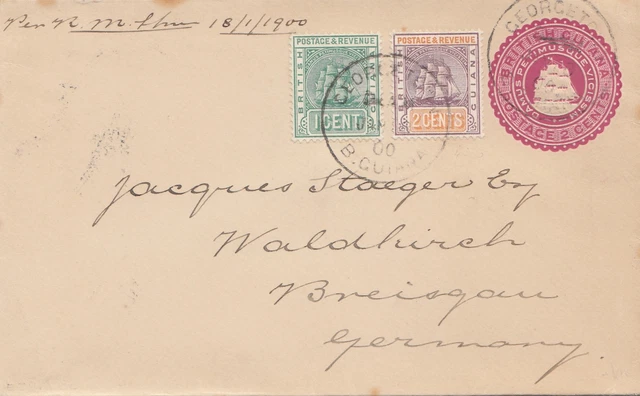 Per R. M. Str 18/1/1900
POSTAGE & REVENUE
BRITISH GUIANA
1 CENT
POSTAGE & REVENUE
BRITISH GUIANA
2 CENTS
GEORGETO
00
B. GUIANA
GEORGETO
BRITISH GUIANA
DAMUS PETIMUSQUE VICISSIM
POSTAGE 2 CENTS
Jacques Staeger Esq
Waldkirch
Breisgau
Germany.